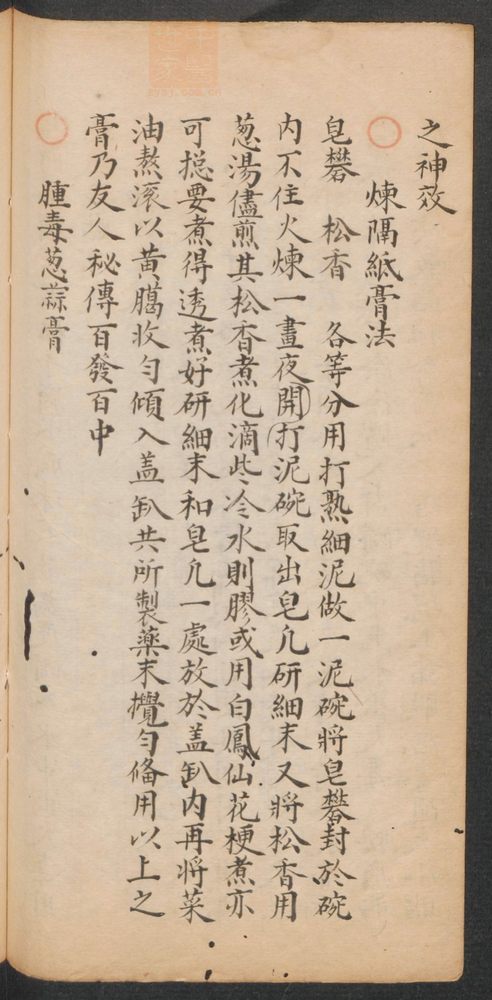 之神效
煉隔紙膏法
皂礬 松香 各等分用打熟細泥做一泥碗將皂礬封於碗
内不住火煉一晝夜開打泥碗取出皂凢研細末又將松香用
葱湯儘煎其松香煮化滴些冷水則膠或用白鳳仙花梗煮亦
可揔要煮得透煮好研細末和皂凢一處放於盖缷内再將菜
油熬滚以黄臈收匀傾入盖缷共所製藥末攪匀俻用以上之
膏乃友人秘傳百發百中
腫毒葱蒜膏